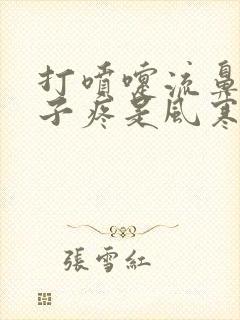 打噴嚏流鼻
子疼是風寒
張雪紅